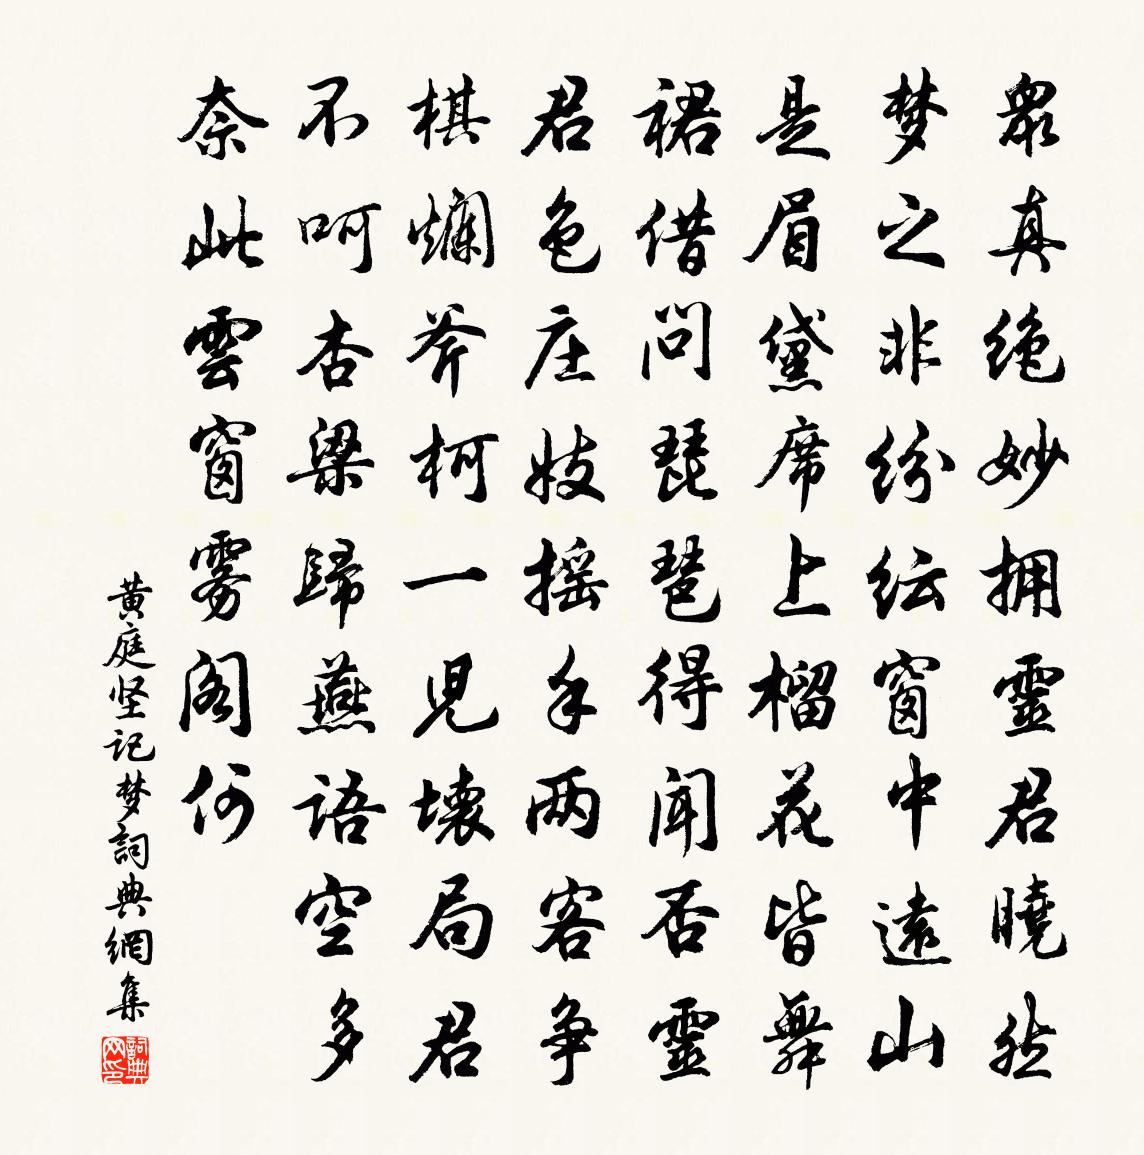 衆真绝妙拥靈君曉然
梦之非纷纭窗中遠山
是眉黛席上榴花皆舞
裙借问琵琶得闻否靈
君色庄妓摇手两客争
棋爛斧柯一児壊局君
不呵杏梁歸燕語空多
奈此雲窗雾阁何
黄庭坚记梦詞典網集
詞典网印